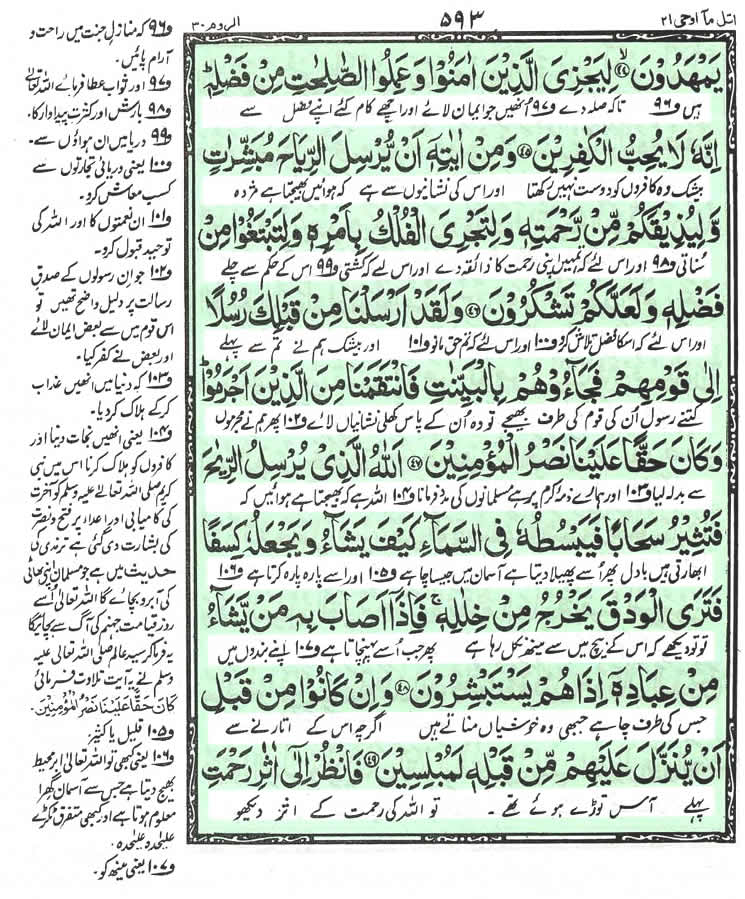 اتل مآ اوحی ۲۱
۵۹۳
الروم ۳۰
یَمْهَدُوْنَۙ۝۴۴ لِیَجْزِیَ الَّذِیْنَ اٰمَنُوْا وَ عَمِلُوا الصّٰلِحٰتِ مِنْ فَضْلِهٖؕ
ہیں ف۹۶ تاکہ صلہ دے ف۹۷ اُنھیں جو ایمان لائے اور اچھے کام کئے اپنے فضل سے
اِنَّهٗ لَا یُحِبُّ الْكٰفِرِیْنَ۝۴۵ وَ مِنْ اٰیٰتِهٖۤ اَنْ یُّرْسِلَ الرِّیَاحَ مُبَشِّرٰتٍ
بیشک وہ کافروں کو دوست نہیں رکھتا اور اس کی نشانیوں سے ہے کہ ہوائیں بھیجتا ہے مژدہ
وَّ لِیُذِیْقَكُمْ مِّنْ رَّحْمَتِهٖ وَ لِتَجْرِیَ الْفُلْكُ بِاَمْرِهٖ وَ لِتَبْتَغُوْا مِنْ
سُناتی ف۹۸ اور اس لئے کہ تمہیں اپنی رحمت کا ذائقہ دے اور اس لئے کہ کشتی ف۹۹ اس کے حکم سے چلے
فَضْلِهٖ وَ لَعَلَّكُمْ تَشْكُرُوْنَ۝۴۶ وَ لَقَدْ اَرْسَلْنَا مِنْ قَبْلِكَ رُسُلًا
اور اس لئے کہ اسکا فضل تلاش کرو ف۱۰۰ اور اس لئے کہ تم حق مانو ف۱۰۱ اور بیشک ہم نے تم سے پہلے
اِلٰی قَوْمِهِمْ فَجَآءُوْهُمْ بِالْبَیِّنٰتِ فَانْتَقَمْنَا مِنَ الَّذِیْنَ اَجْرَمُوْاؕ
کتنے رسول اُن کی قوم کی طرف بھیجے تو وہ اُن کے پاس کھلی نشانیاں لائے ف۱۰۲ پھر ہم نے مجرموں
وَ كَانَ حَقًّا عَلَیْنَا نَصْرُ الْمُؤْمِنِیْنَ۝۴۷ اَللّٰهُ الَّذِیْ یُرْسِلُ الرِّیٰحَ
سے بدلہ لیا ف۱۰۳ اور ہمارے ذمۂ کرم پر ہے مسلمانوں کی مدد فرمانا ف۱۰۴ اللہ ہے کہ بھیجتا ہے ہوائیں کہ
فَتُثِیْرُ سَحَابًا فَیَبْسُطُهٗ فِی السَّمَآءِ كَیْفَ یَشَآءُ وَ یَجْعَلُهٗ كِسَفًا
ابھارتی ہیں بادل پھر اُسے پھیلا دیتا ہے آسمان میں جیسا چاہے ف۱۰۵ اور اسے پارہ پارہ کرتا ہے ف۱۰۶
فَتَرَی الْوَدْقَ یَخْرُجُ مِنْ خِلٰلِهٖۚ فَاِذَاۤ اَصَابَ بِهٖ مَنْ یَّشَآءُ
تو تو دیکھے کہ اس کے بیچ میں سے مینھ نکل رہا ہے پھر جب اُسے پہنچاتا ہے ف۱۰۷ اپنے بندوں میں
مِنْ عِبَادِهٖۤ اِذَا هُمْ یَسْتَبْشِرُوْنَ۝۴۸ وَ اِنْ كَانُوْا مِنْ قَبْلِ
جس کی طرف چاہے جبھی وہ خوشیاں مناتے ہیں اگرچہ اس کے اتارنے سے
اَنْ یُّنَزَّلَ عَلَیْهِمْ مِّنْ قَبْلِهٖ لَمُبْلِسِیْنَ۝۴۹ فَانْظُرْ اِلٰۤی اٰثٰرِ رَحْمَتِ
پہلے آس توڑے ہوئے تھے ۔ تو اللہ کی رحمت کے اثر دیکھو
ف۹۶ کہ منازل جنت میں راحت و
آرام پائیں۔
ف۹۷ اور ثواب عطا فرمائے اللہ تعالٰی
ف۹۸ بارش اور کثرتِ پیداوار کا۔
ف۹۹ دریا میں ان ہواؤں سے۔
ف۱۰۰ یعنی دریائی تجارتوں سے
کسب معاش کرو۔
ف۱۰۱ ان نعمتوں کا اور اللہ کی
توحید قبول کرو۔
ف۱۰۲ جو ان رسولوں کے صدقِ
رسالت پر دلیل واضح تھیں تو
اس قوم میں سے بعض ایمان لائے
اور بعض نے کفر کیا۔
ف۱۰۳ کہ دنیا میں انھیں عذاب
کرکے ہلاک کردیا۔
ف۱۰۴ یعنی انھیں نجات دینا اور
کافروں کو ہلاک کرنا اس میں نبی
کریم صلی اللہ تعالٰی علیہ وسلم کو آخرت
کی کامیابی اور اعداء پر فتح و نصرت
کی بشارت دی گئی ہے ترمذی کی
حدیث میں ہے جو مسلمان اپنے بھائی
کی آبرو بچائے گا اللہ تعالٰی اُسے
روز قیامت جہنم کی آگ سے بچائیگا
یہ فرما کر سید عالم صلی اللہ تعالٰی علیہ
وسلم نے یہ آیت تلاوت فرمائی
كَانَ حَقًّا عَلَیْنَا نَصْرُ الْمُؤْمِنِیْنَ.
ف۱۰۵ قلیل یا کثیر۔
ف۱۰۶ یعنی کبھی تو اللہ تعالٰی ابر محیط
بھیج دیتا ہے جس سے آسمان گھرا
معلوم ہوتا ہے اور کبھی متفرق ٹکڑے
علیٰحدہ علیٰحدہ۔
ف۱۰۷ یعنی مینھ کو۔